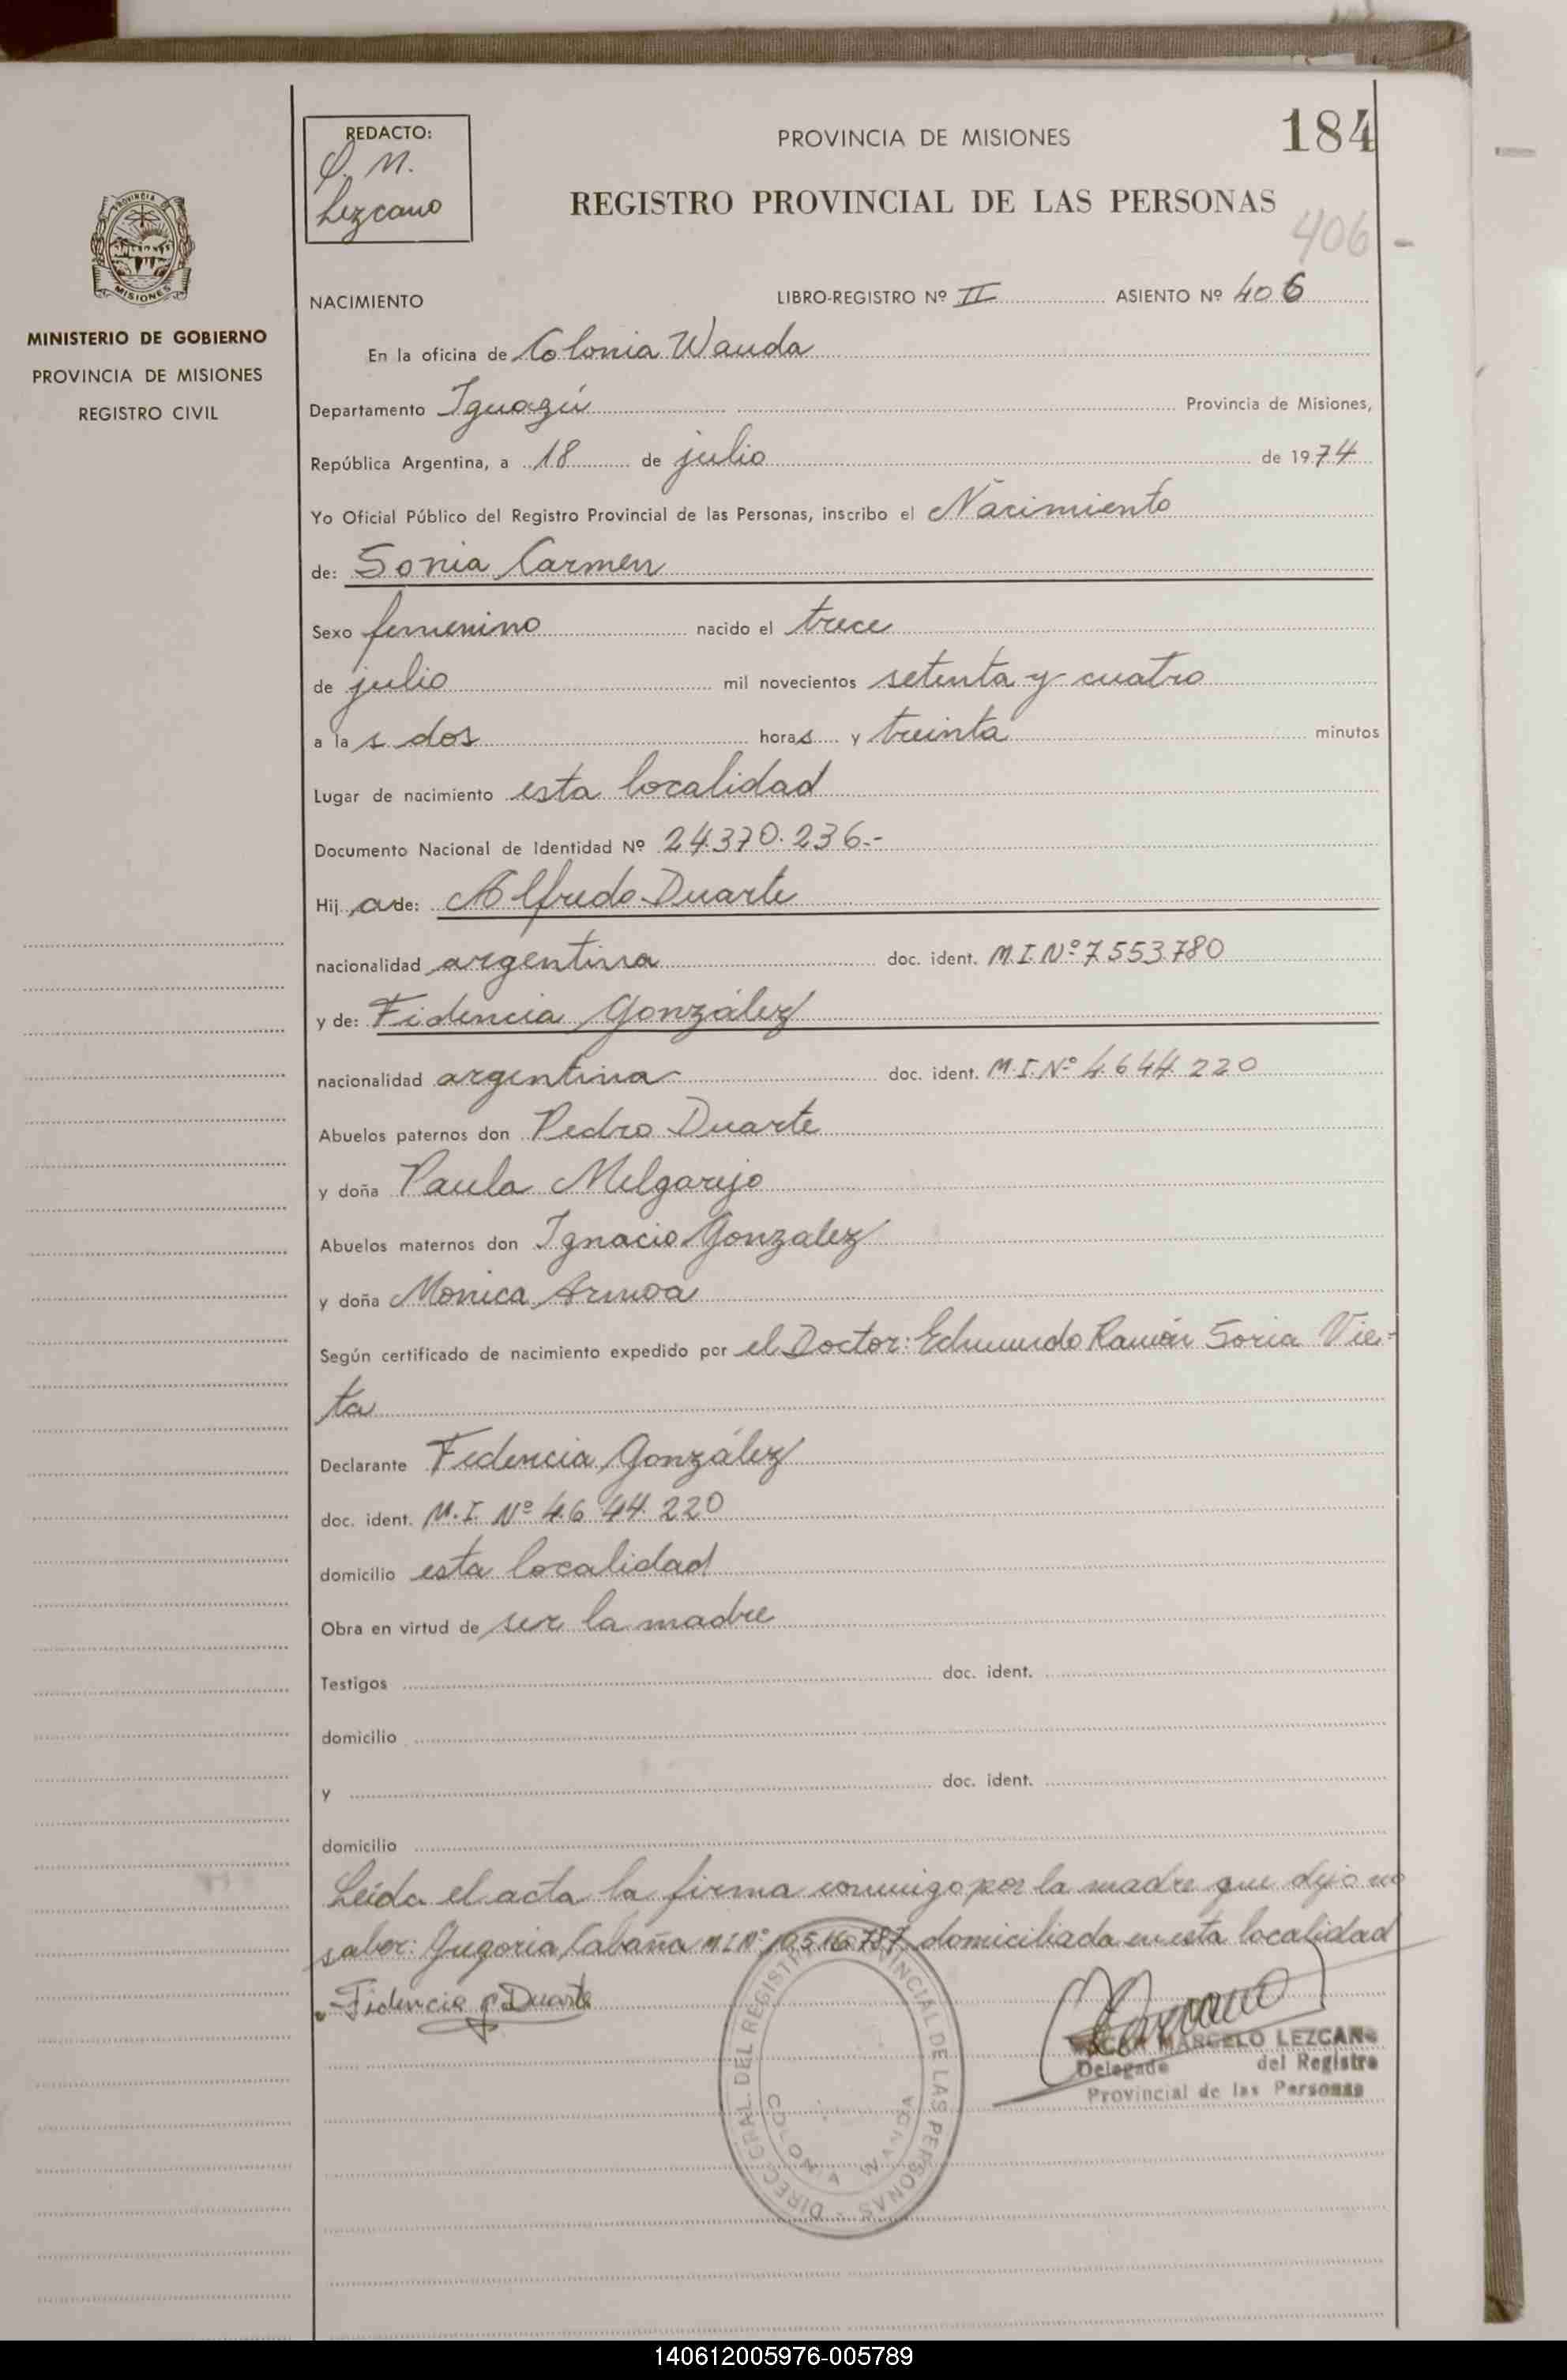 184
REDACTO:
O. M.
Lezcano
PROVINCIA DE MISIONES
REGISTRO PROVINCIAL DE LAS PERSONAS
406 -
PROVINCIA DE
MISIONES
MINISTERIO DE GOBIERNO
PROVINCIA DE MISIONES
REGISTRO CIVIL
NACIMIENTO LIBRO-REGISTRO Nº II ASIENTO Nº 406
En la oficina de Colonia Wanda
Departamento Iguazú Provincia de Misiones,
República Argentina, a 18 de julio de 1974
Yo Oficial Público del Registro Provincial de las Personas, inscribo el Nacimiento
de: Sonia Carmen
Sexo femenino nacido el trece
de julio mil novecientos setenta y cuatro
a las dos horas y treinta minutos
Lugar de nacimiento esta localidad
Documento Nacional de Identidad Nº 24.370.236.-
Hij a de: Alfredo Duarte
nacionalidad argentina doc. ident. M.I. Nº 7.553.780
y de: Fidencia González
nacionalidad argentina doc. ident. M.I. Nº 4.644.220
Abuelos paternos don Pedro Duarte
y doña Paula Melgarejo
Abuelos maternos don Ignacio Gonzalez
y doña Monica Armoa
Según certificado de nacimiento expedido por el Doctor: Edmundo Ramón Soria Vie-
ta
Declarante Fidencia González
doc. ident. M.I. Nº 4.644.220
domicilio esta localidad
Obra en virtud de ser la madre
Testigos doc. ident.
domicilio
y doc. ident.
domicilio
Leída el acta la firma conmigo por la madre que dijo no
saber: Gregoria Cabaña M.I.Nº 10.516.787 domiciliada en esta localidad
Fidencia g Duarte
DIREC. GRAL. DEL REGISTRO PROVINCIAL DE LAS PERSONAS
COLONIA WANDA
OSCAR MARCELO LEZCANO
Delegado del Registro
Provincial de las Personas
140612005976-005789